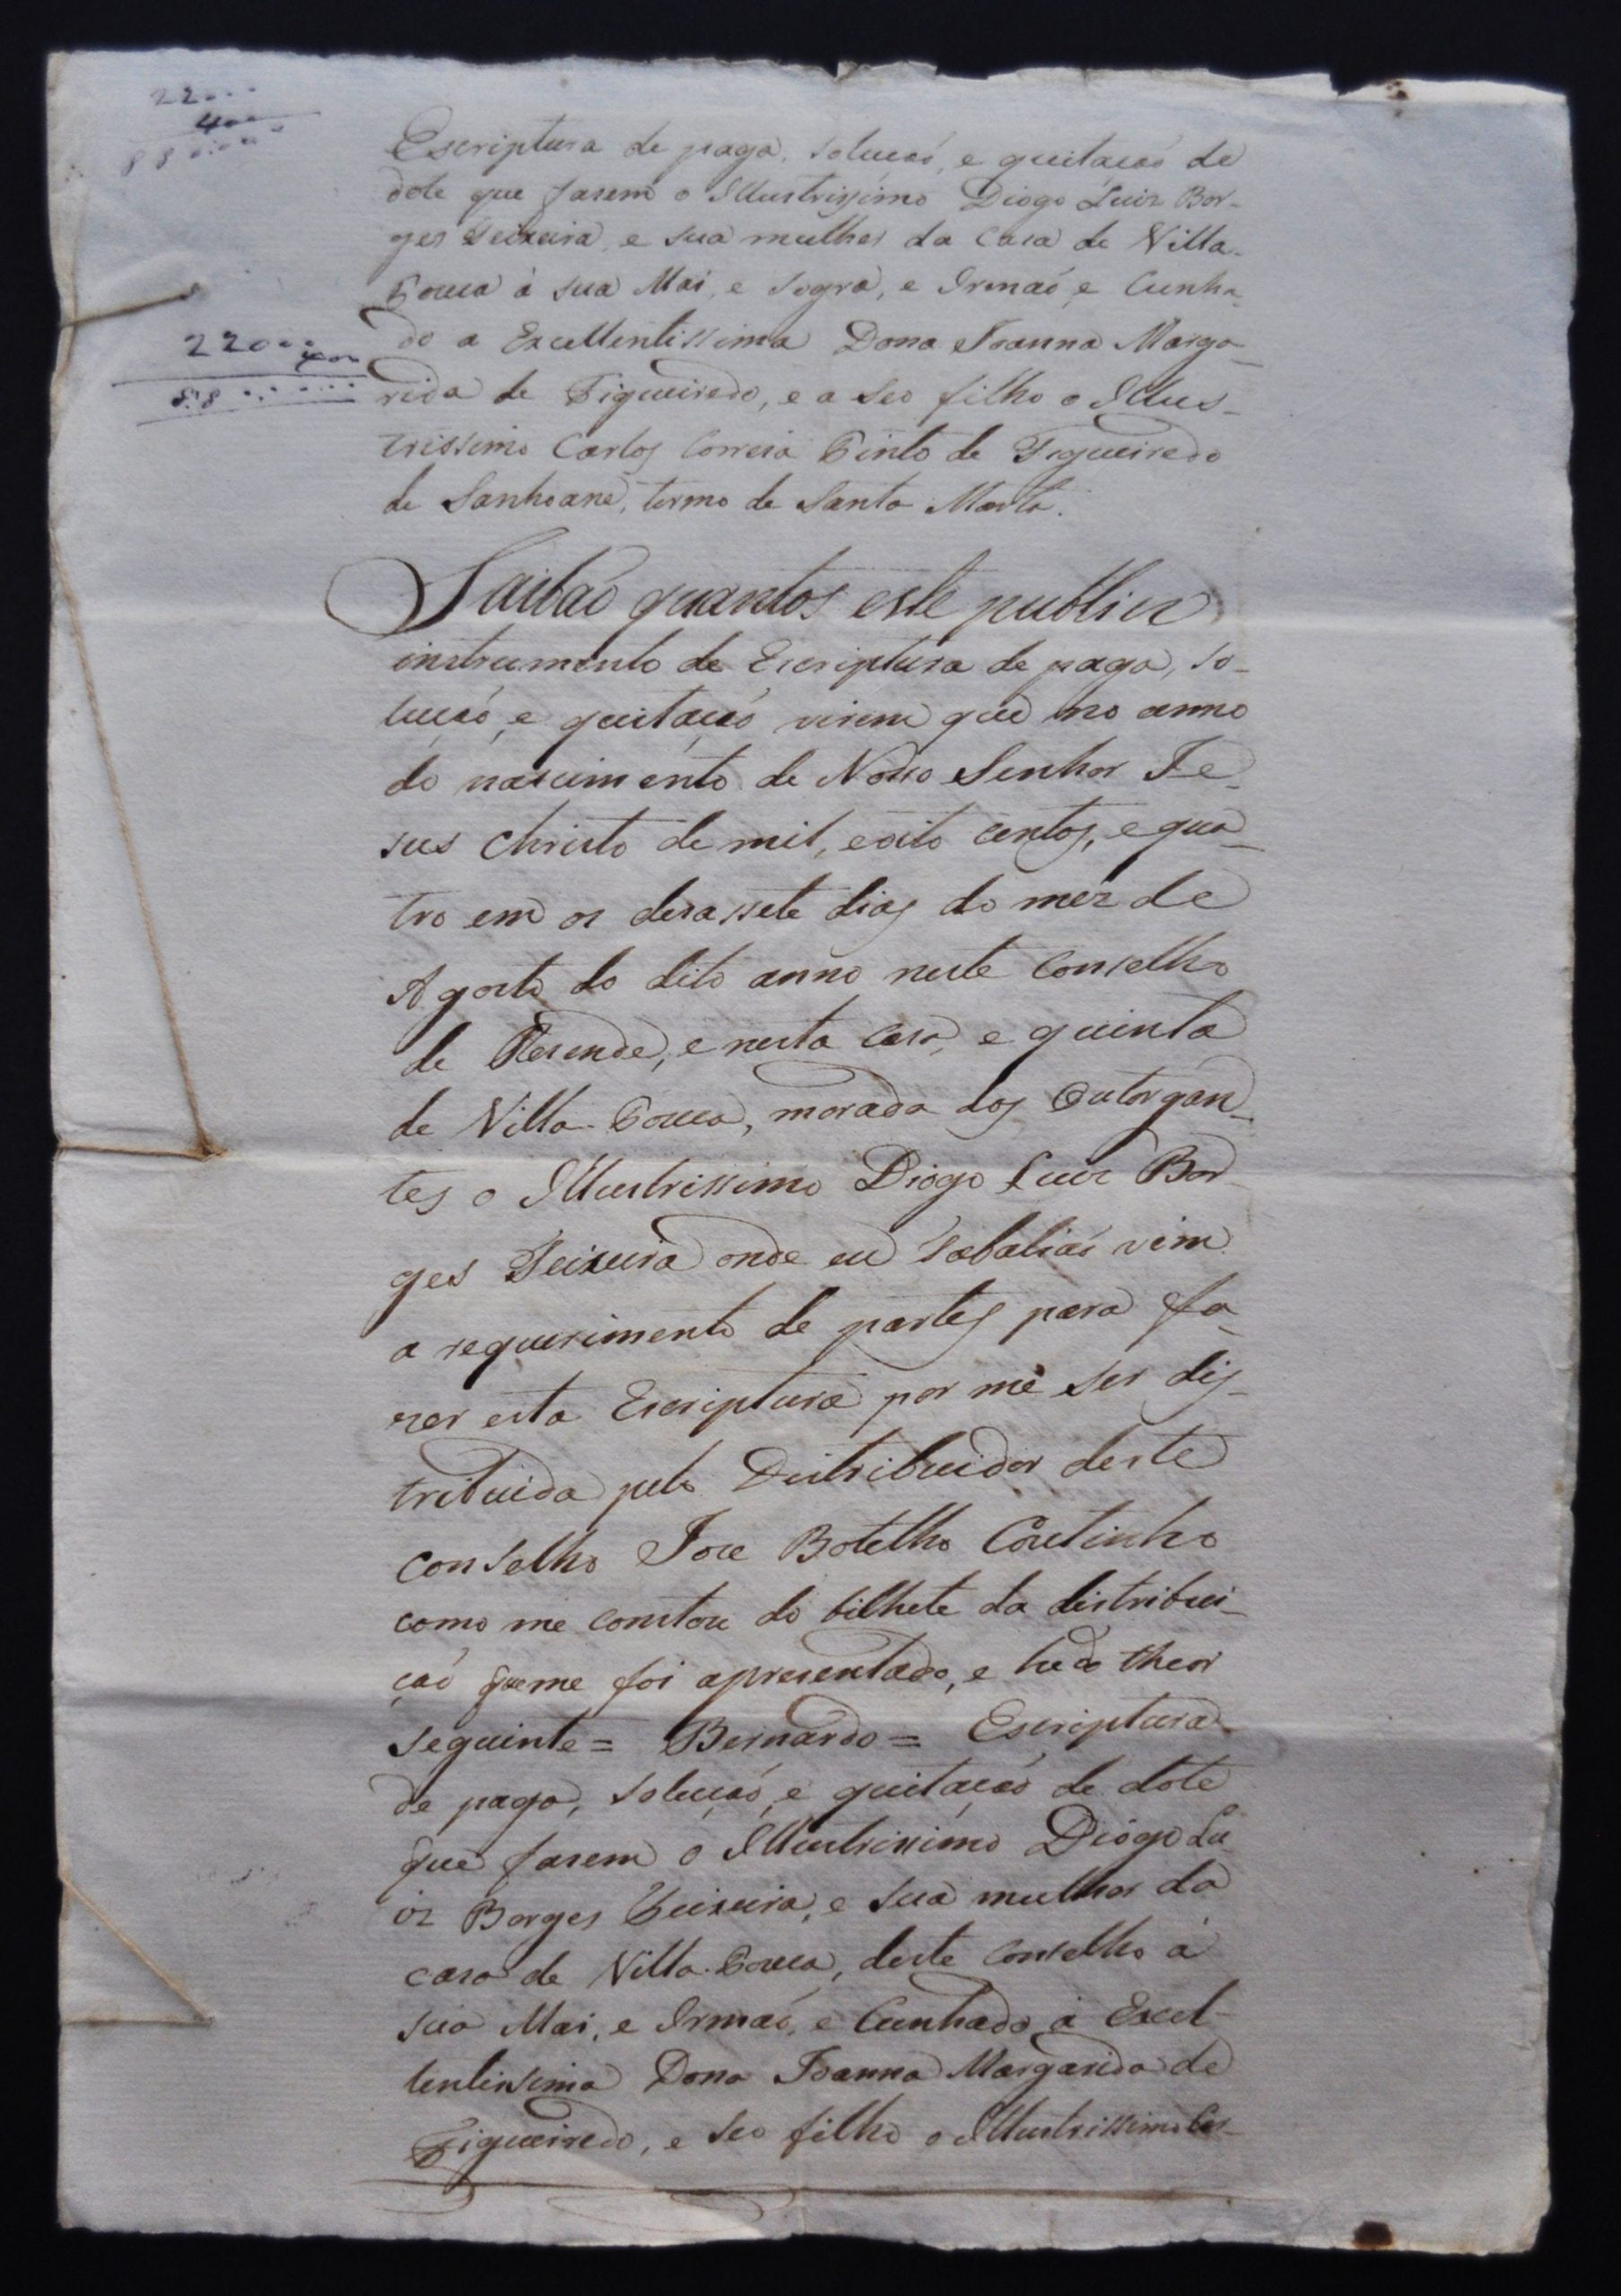 22...
4००
88.....
Escriptura de paga, soluçaõ, e quitaçaõ de
dote que fasem o Illustrissimo Diogo Luiz Bor-
ges Teixeira, e sua mulher da Casa de Villa-
Pouca á sua Mai, e Sogra, e Irmaõ, e Cunha-
do a Excellentissima Dona Joanna Marga-
rida de Figueiredo, e a seo filho o Illus-
trissimo Carlos Correia Pinto de Figueiredo
de Sanhoane, termo de Santa Marta.
220...
400
88......
Saibaõ quantos este publico
instrumento de Escriptura de paga, so-
luçaõ, e quitaçaõ virem que no anno
do nascimento de Nosso Senhor Je-
sus Christo de mil, e oito centos, e qua-
tro em os desassete dias do mez de
Agosto do dito anno neste Conselho
de Resende, e nesta casa, e quinta
de Villa-Pouca, morada dos Outorgan-
tes o Illustrissimo Diogo Luiz Bor-
ges Teixeira onde eu Tabaliaõ vim
a requerimento de partes para fa-
zer esta Escriptura por me ser dis-
tribuida pelo Distribuidor deste
conselho Jose Botelho Coutinho
como me constou do bilhete da distribui-
çaõ que me foi apresentado, e he do theor
seguinte = Bernardo = Escriptura
de paga, soluçaõ, e quitaçaõ de dote
que fasem o Illustrissimo Diogo Lu-
iz Borges Teixeira, e sua mulher da
casa de Villa-Pouca, deste conselho á
sua Mai, e Irmaõ, e Cunhado á Excel-
lentissima Dona Joanna Margarida de
Figueiredo, e seo filho o Illustrissimo Car-